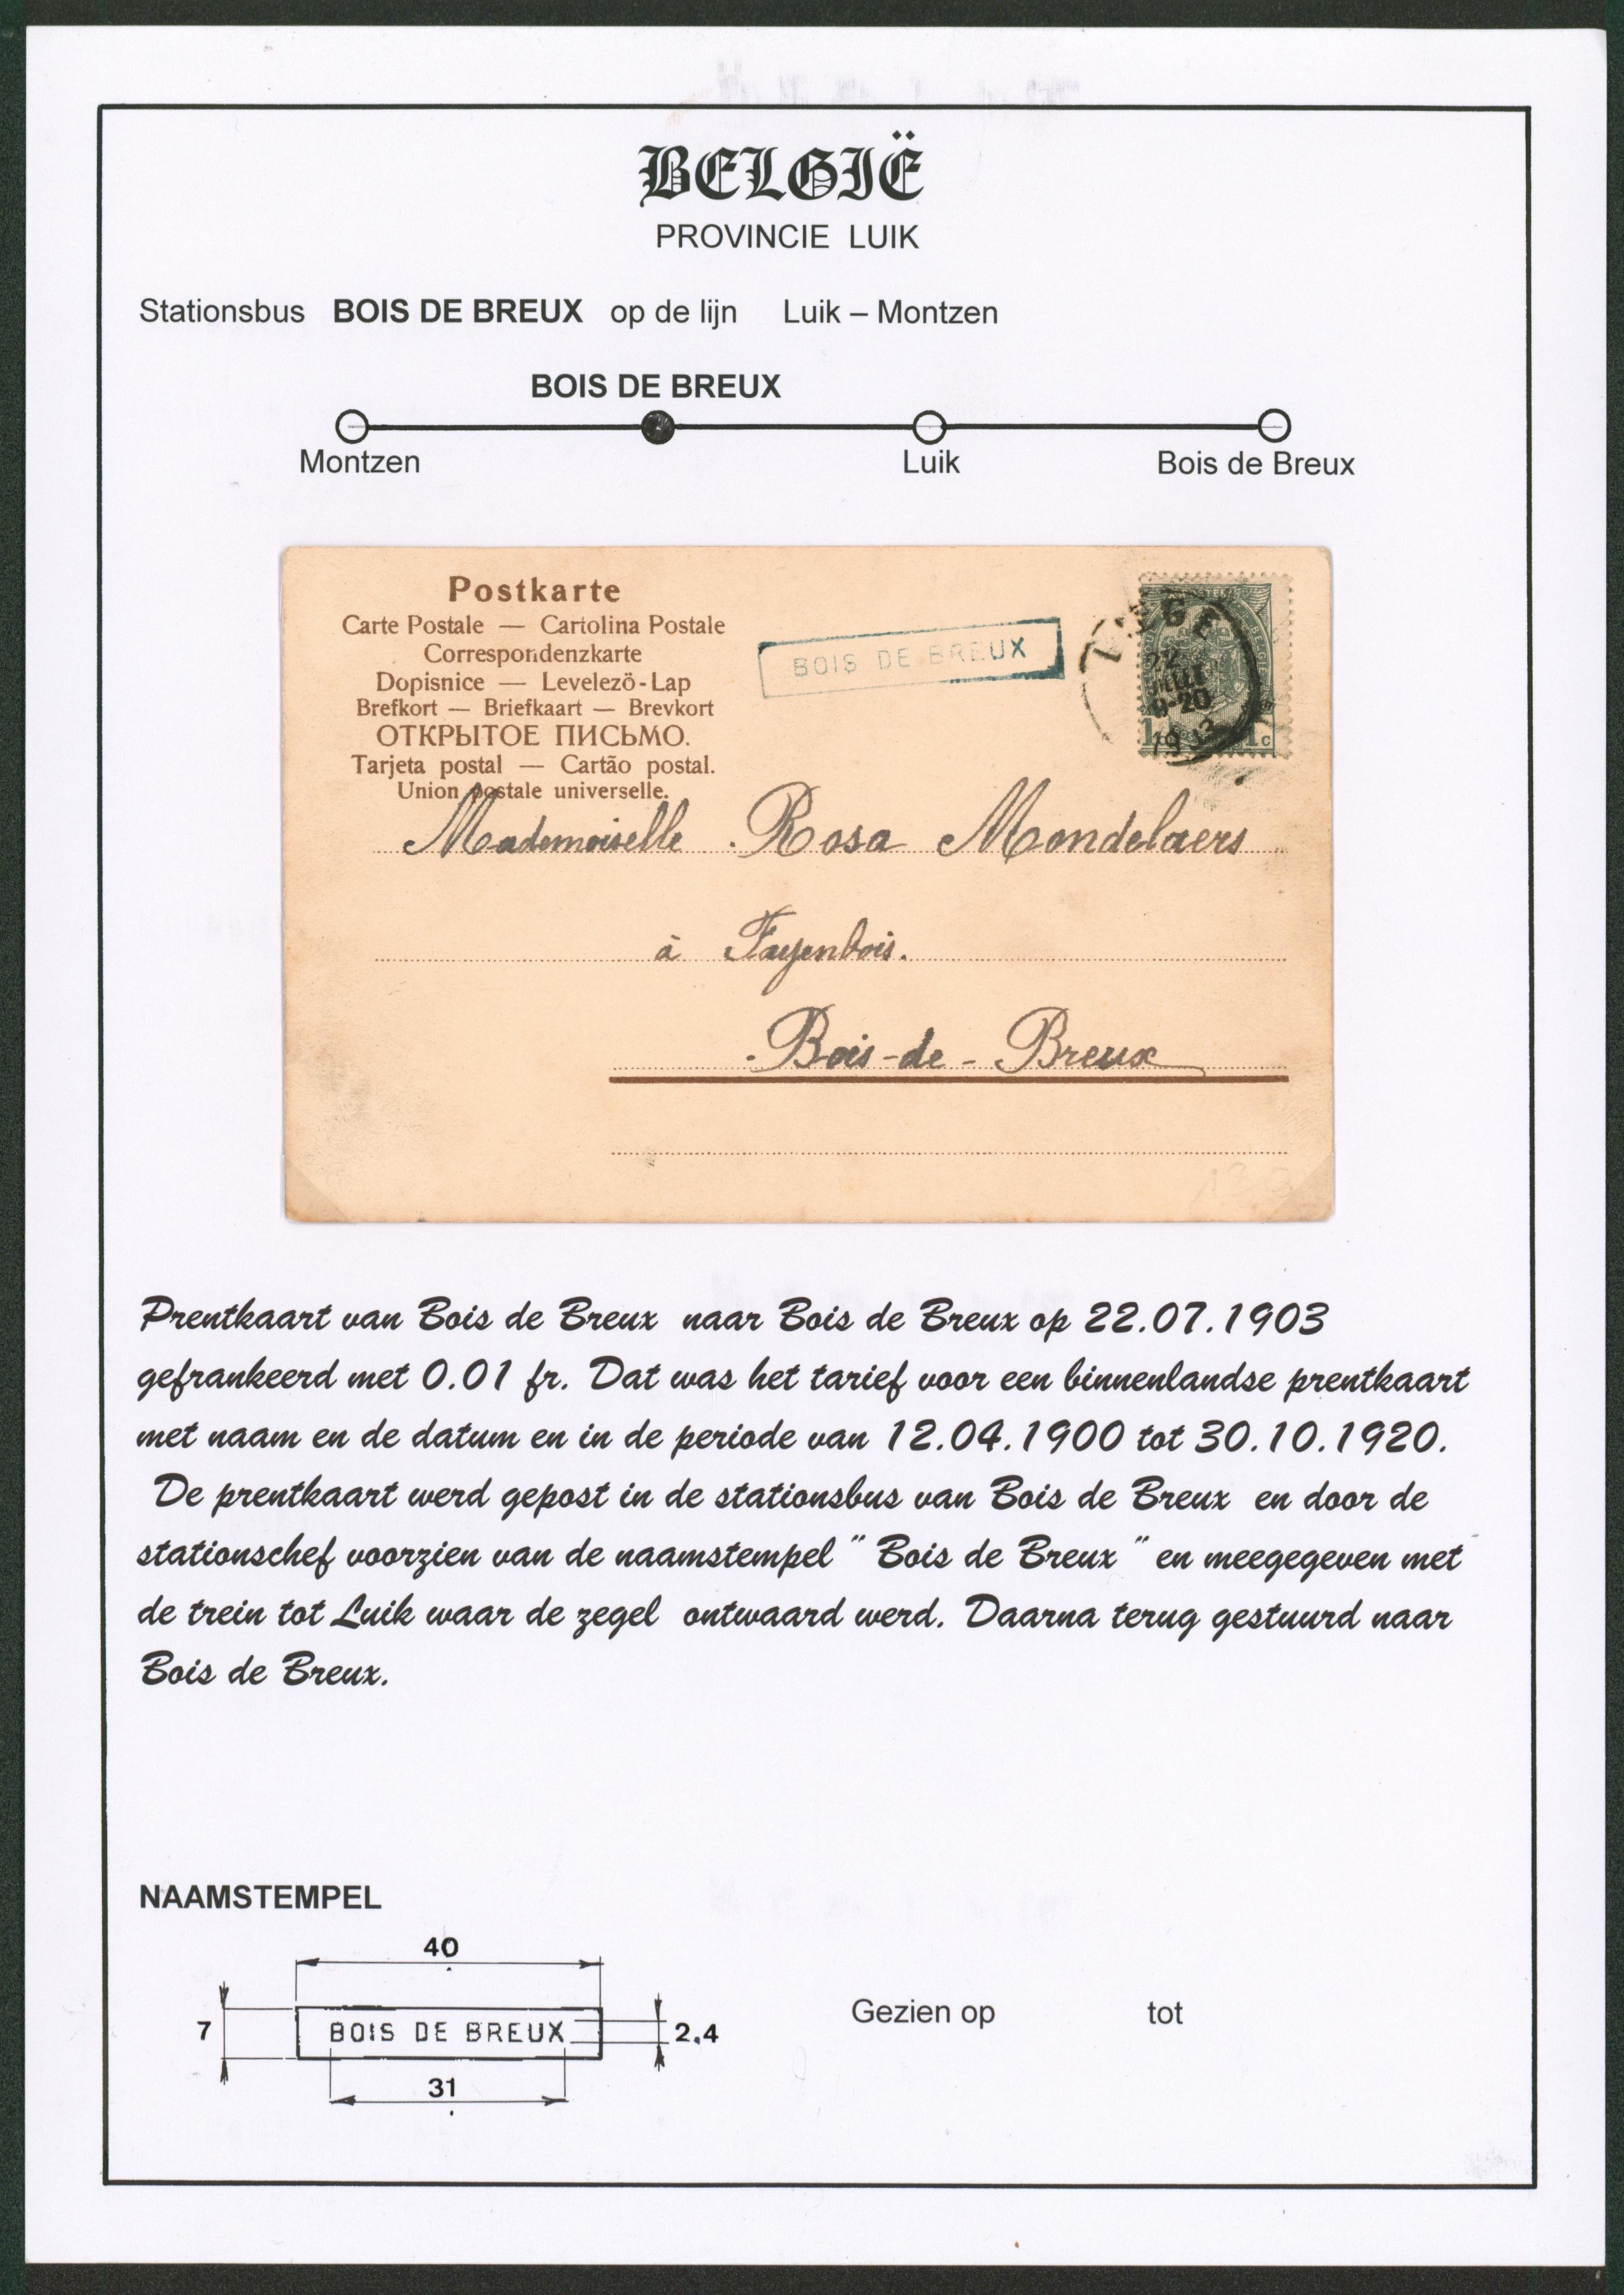 BELGIË
PROVINCIE LUIK
Stationsbus BOIS DE BREUX op de lijn Luik – Montzen
BOIS DE BREUX
Montzen Luik Bois de Breux
Postkarte
Carte Postale — Cartolina Postale
Correspondenzkarte
Dopisnice — Levelezö-Lap
Brefkort — Briefkaart — Brevkort
ОТКРЫТОЕ ПИСЬМО.
Tarjeta postal — Cartão postal.
Union postale universelle.
BOIS DE BREUX
LIEGE
22
JUIL
9-20
1903
1c 1c
Mademoiselle Rosa Mondelaers
à Fayenbois.
Bois-de-Breux
Prentkaart van Bois de Breux naar Bois de Breux op 22.07.1903
gefrankeerd met 0.01 fr. Dat was het tarief voor een binnenlandse prentkaart
met naam en de datum en in de periode van 12.04.1900 tot 30.10.1920.
De prentkaart werd gepost in de stationsbus van Bois de Breux en door de
stationschef voorzien van de naamstempel " Bois de Breux " en meegegeven met
de trein tot Luik waar de zegel ontwaard werd. Daarna terug gestuurd naar
Bois de Breux.
NAAMSTEMPEL
40
7 BOIS DE BREUX 2,4
31
Gezien op tot